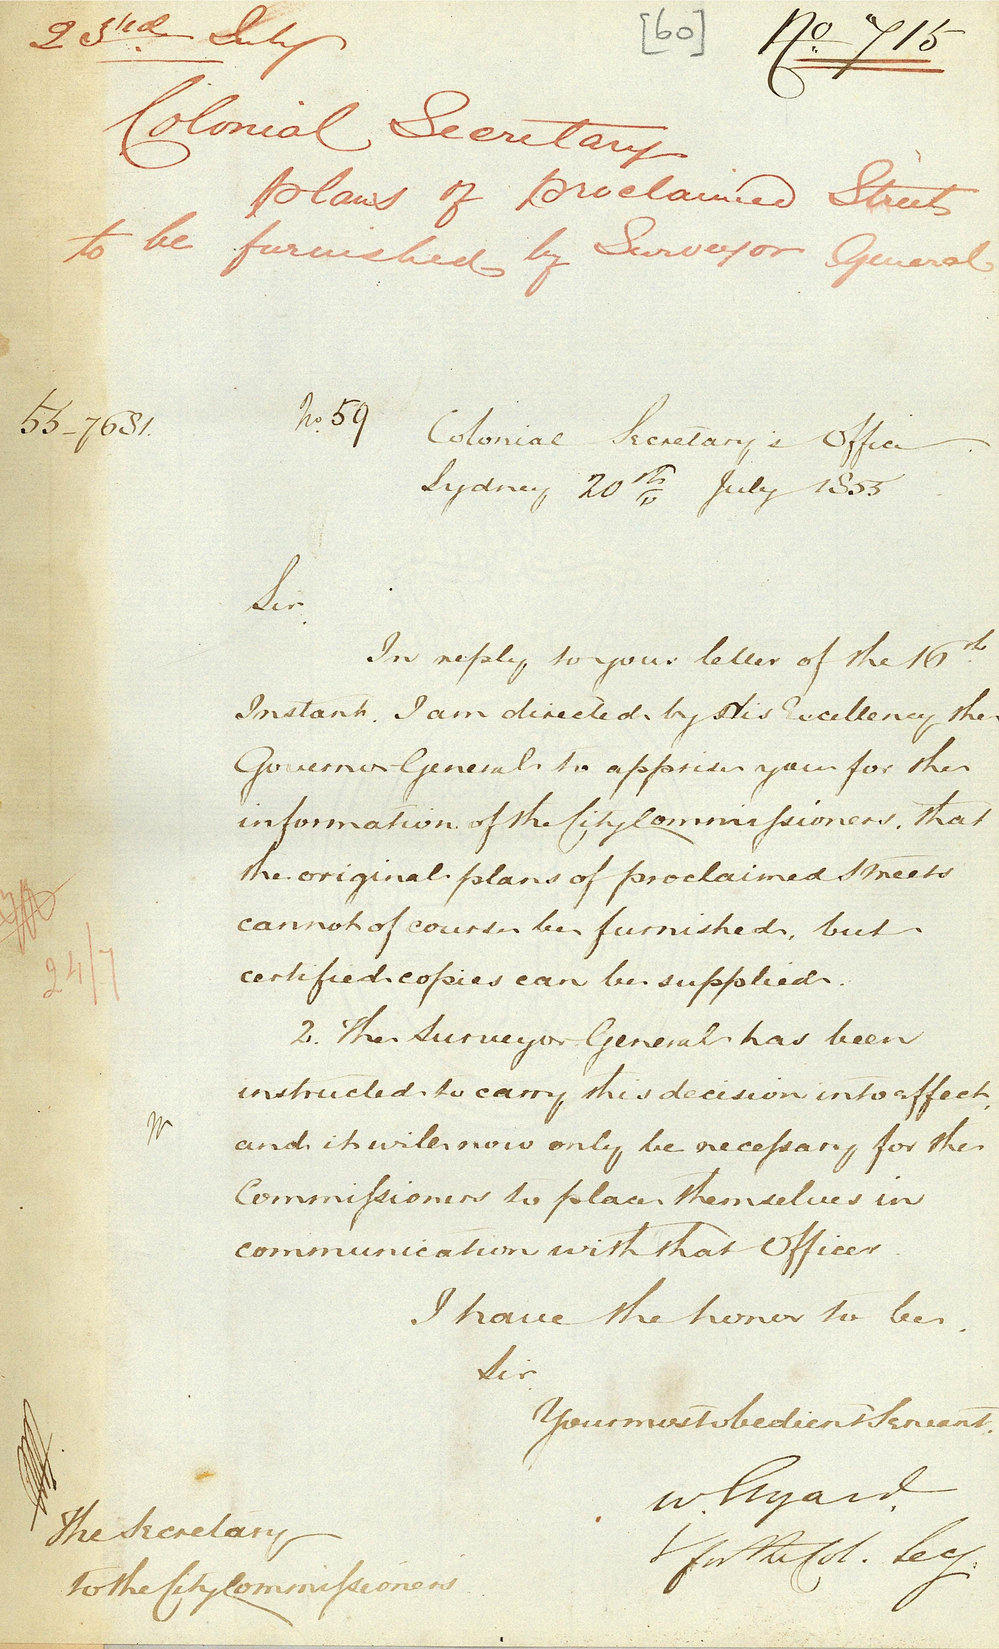 23rd July
[60]
No. 715
Colonial Secretary
plans of proclaimed Streets
to be furnished by Surveyor General
55-7681.
No. 59
Colonial Secretary's Office
Sydney 20th July 1855
Sir,
In reply to your letter of the 16th
Instant. I am directed by His Excellency the
Governor General to apprise you for the
information of the City Commissioners, that
the original plans of proclaimed Streets
cannot of course be furnished, but
certified copies can be supplied.
24/7
2. The Surveyor General has been
instructed to carry this decision into effect,
and it will now only be necessary for the
Commissioners to place themselves in
communication with that Officer.
I have the honor to be,
Sir
Your most obedient Servant.
W. Elyard.
for the Col. Secy.
The Secretary
to the City Commissioners